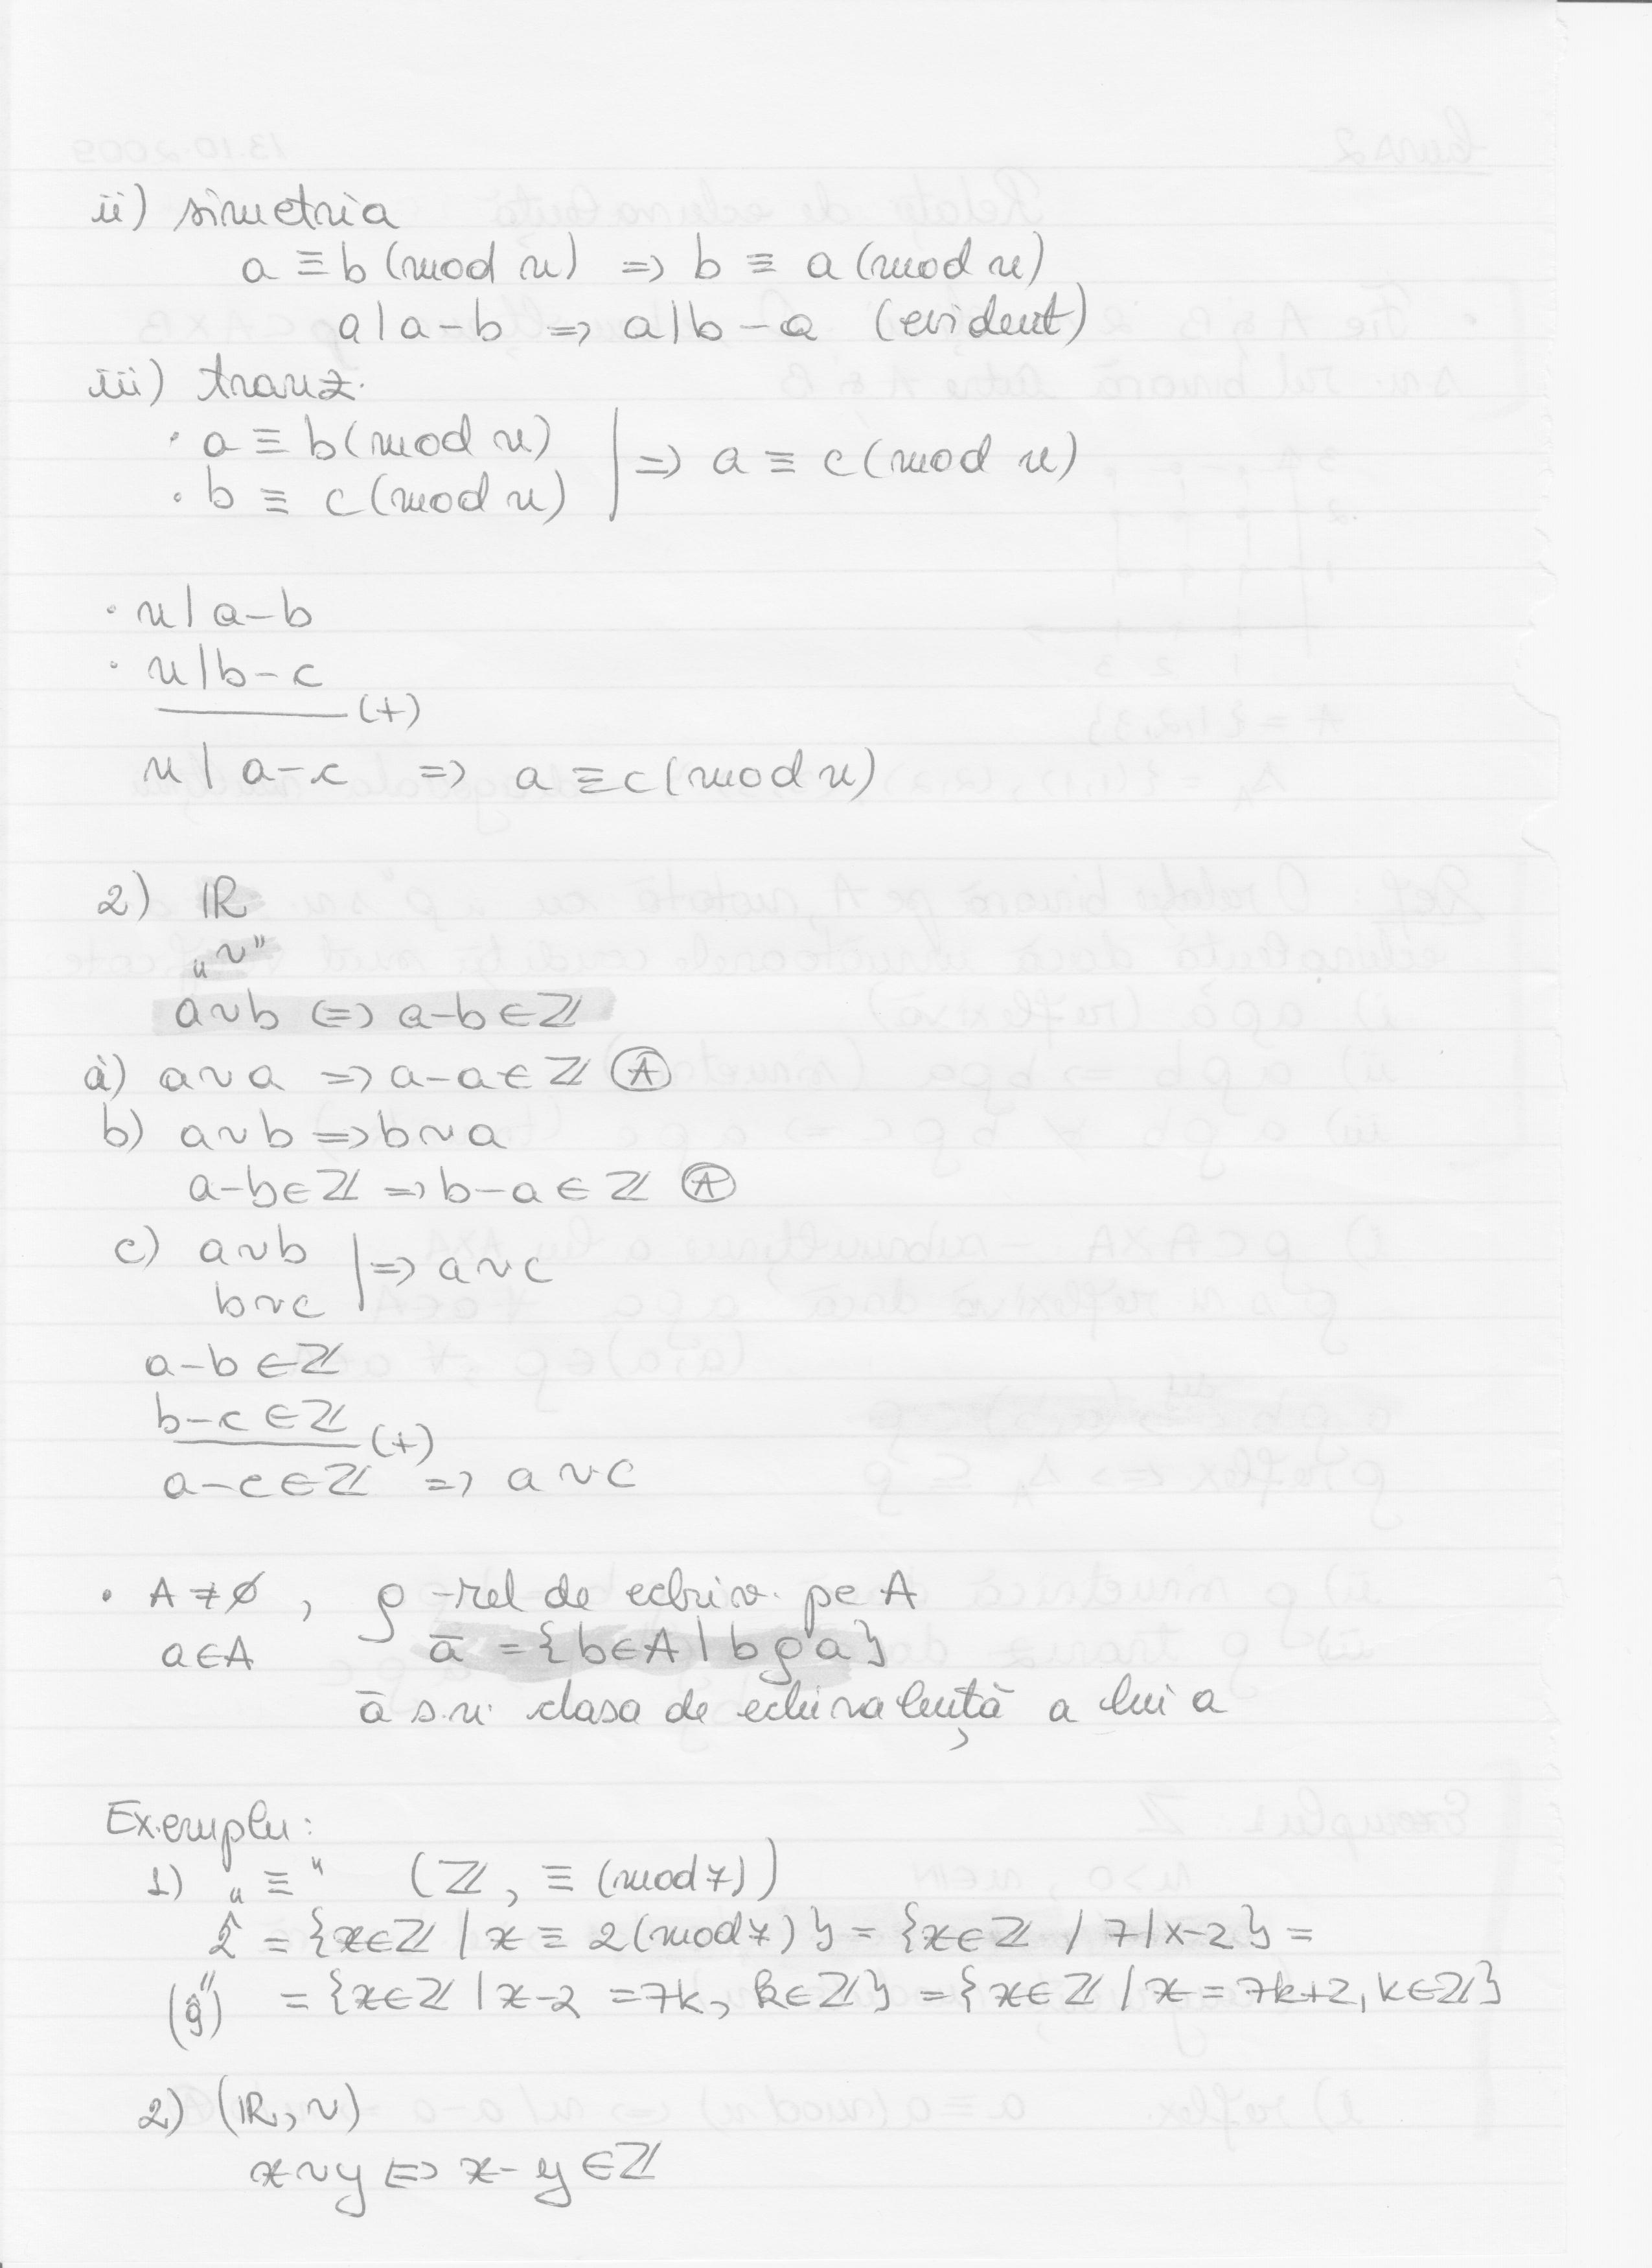 ii) simetria
a ≡ b (mod n) => b ≡ a (mod n)
a | a-b => a | b-a (evident)
iii) tranz.
· a ≡ b (mod n) | => a ≡ c (mod n)
· b ≡ c (mod n)
· n | a-b
· n | b-c
(+)
n | a-c => a ≡ c (mod n)
2) ℝ
„~"
a~b <=> a-b∈ℤ
a) a~a => a-a∈ℤ Ⓐ
b) a~b => b~a
a-b∈ℤ => b-a∈ℤ Ⓐ
c) a~b | => a~c
b~c
a-b∈ℤ
b-c∈ℤ (+)
a-c∈ℤ => a~c
· A≠∅, ρ -rel de echiv. pe A
a∈A ā = {b∈A | bρa}
ā s.n. clasa de echivalență a lui a
Exemplu:
1) „≡" (ℤ, ≡ (mod 7))
2̂ = {x∈ℤ | x ≡ 2 (mod 7)} = {x∈ℤ / 7 | x-2} =
(9̂) = {x∈ℤ | x-2 = 7k, k∈ℤ} = {x∈ℤ / x = 7k+2, k∈ℤ}
2) (ℝ, ~)
x~y <=> x-y∈ℤ